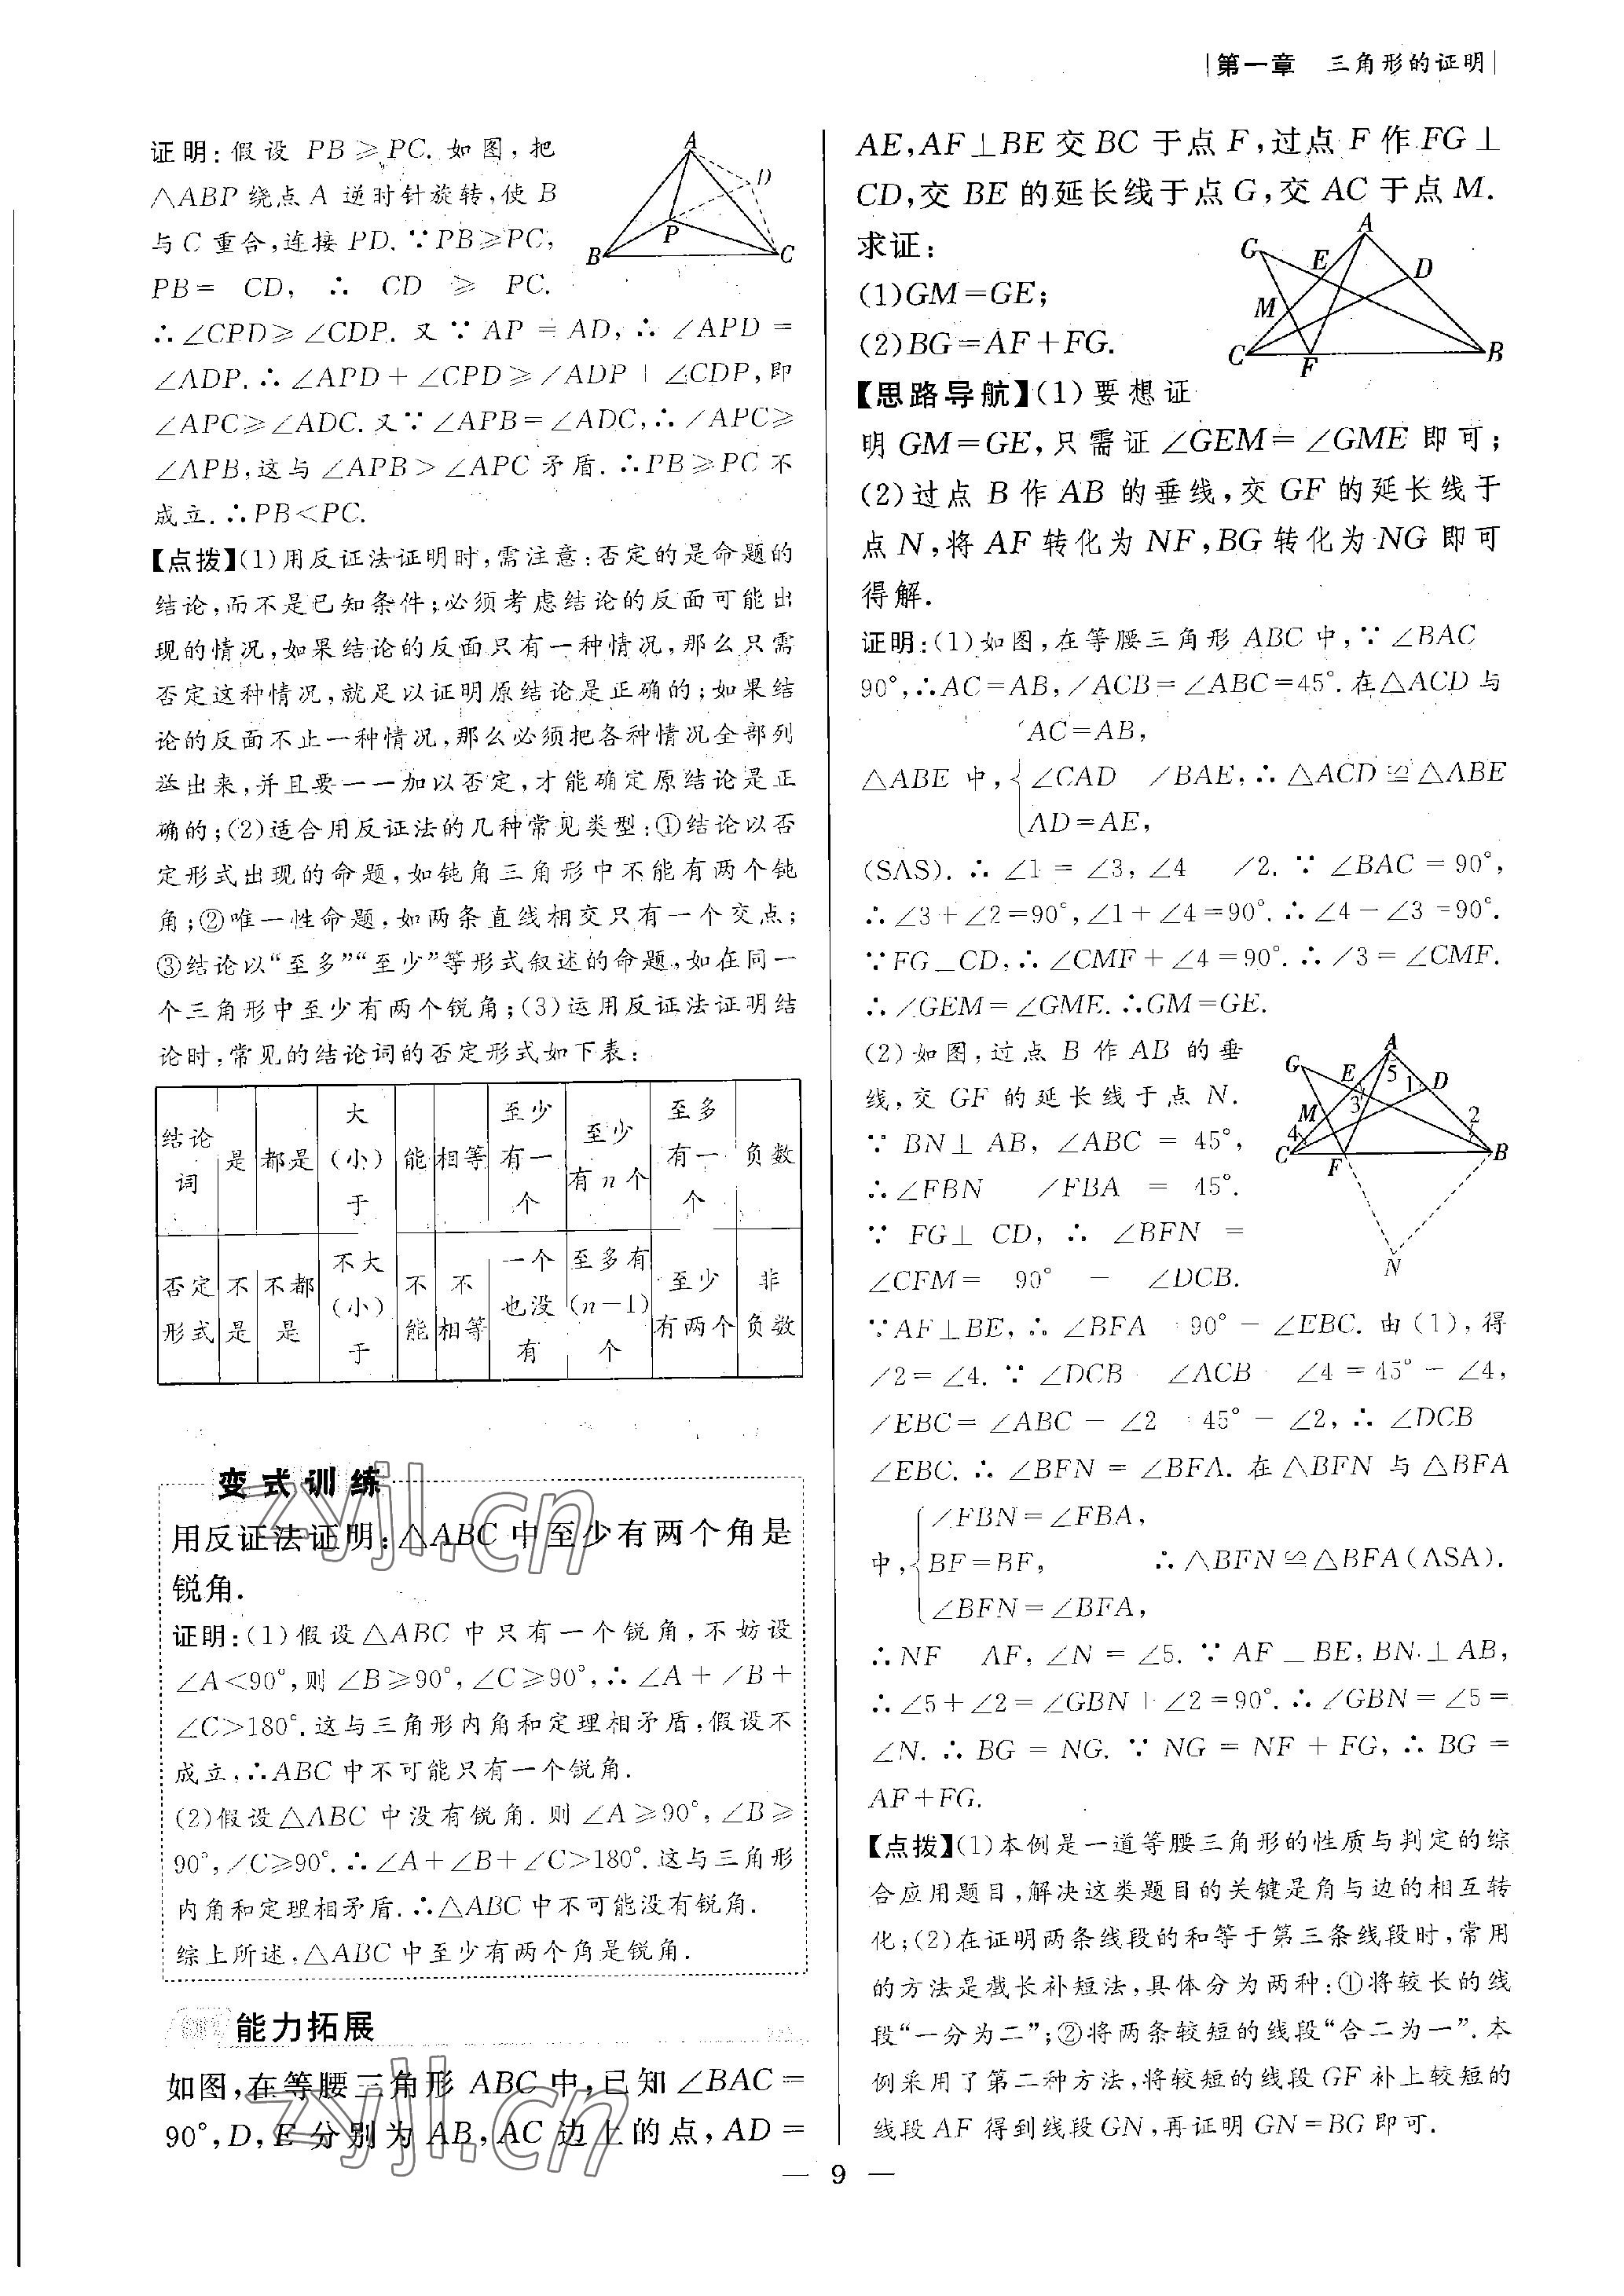 第一章 三角形的证明
证明:假设 PB≥PC. 如图,把
△ABP 绕点 A 逆时针旋转,使 B
与 C 重合,连接 PD. ∵PB≥PC,
PB= CD, ∴ CD ≥ PC.
∴∠CPD≥∠CDP. 又∵ AP = AD, ∴ ∠APD =
∠ADP. ∴ ∠APD + ∠CPD≥∠ADP + ∠CDP, 即
∠APC≥∠ADC. 又∵ ∠APB=∠ADC, ∴∠APC≥
∠APB,这与 ∠APB > ∠APC 矛盾. ∴PB≥PC 不
成立. ∴PB<PC.
A
D
P
B
C
【点拨】(1)用反证法证明时,需注意:否定的是命题的
结论,而不是已知条件;必须考虑结论的反面可能出
现的情况,如果结论的反面只有一种情况,那么只需
否定这种情况,就足以证明原结论是正确的;如果结
论的反面不止一种情况,那么必须把各种情况全部列
举出来,并且要一一加以否定,才能确定原结论是正
确的;(2)适合用反证法的几种常见类型:①结论以否
定形式出现的命题,如钝角三角形中不能有两个钝
角;②唯一性命题,如两条直线相交只有一个交点;
③结论以“至多”“至少”等形式叙述的命题,如在同一
个三角形中至少有两个锐角;(3)运用反证法证明结
论时,常见的结论词的否定形式如下表:
结论词 是 都是 大(小)于 能 相等 至少有一个 至少有 n 个 至多有一个 负数
否定形式 不是 不都是 不大(小)于 不能 不相等 一个也没有 至多有(n-1)个 至少有两个 非负数
变式训练
用反证法证明:△ABC 中至少有两个角是
锐角.
证明:(1)假设△ABC 中只有一个锐角,不妨设
∠A<90°,则 ∠B≥90°,∠C≥90°,∴ ∠A+∠B+
∠C>180°. 这与三角形内角和定理相矛盾,假设不
成立,∴ABC 中不可能只有一个锐角.
(2)假设△ABC 中没有锐角. 则 ∠A≥90°,∠B≥
90°,∠C≥90°. ∴∠A+∠B+∠C>180°. 这与三角形
内角和定理相矛盾. ∴△ABC 中不可能没有锐角.
综上所述,△ABC 中至少有两个角是锐角.
zyjl.cn
能力拓展
如图,在等腰三角形 ABC 中,已知 ∠BAC=
90°,D,E 分别为 AB,AC 边上的点,AD=
zyjl.cn
AE,AF⊥BE 交 BC 于点 F,过点 F 作 FG⊥
CD,交 BE 的延长线于点 G,交 AC 于点 M.
求证:
(1)GM=GE;
(2)BG=AF+FG.
A
G
E
D
M
C
F
B
【思路导航】(1)要想证
明 GM=GE,只需证 ∠GEM=∠GME 即可;
(2)过点 B 作 AB 的垂线,交 GF 的延长线于
点 N,将 AF 转化为 NF,BG 转化为 NG 即可
得解.
证明:(1)如图,在等腰三角形 ABC 中,∵ ∠BAC
90°,∴AC=AB,∠ACB=∠ABC=45°. 在△ACD 与
AC=AB,
△ABE 中, ∠CAD ∠BAE, ∴ △ACD≌△ABE
AD=AE,
(SAS). ∴ ∠1 = ∠3, ∠4 ∠2. ∵ ∠BAC = 90°,
∴∠3+∠2=90°,∠1+∠4=90°. ∴∠4-∠3=90°.
∵FG⊥CD,∴∠CMF+∠4=90°. ∴∠3=∠CMF.
∴∠GEM=∠GME. ∴GM=GE.
(2)如图,过点 B 作 AB 的垂
线,交 GF 的延长线于点 N.
∵ BN⊥AB, ∠ABC = 45°,
∴∠FBN ∠FBA = 45°.
∵ FG⊥ CD, ∴ ∠BFN =
∠CFM= 90° - ∠DCB.
A
G
E
5
1
D
3
M
2
4
C
F
B
N
∵AF⊥BE, ∴ ∠BFA 90° - ∠EBC. 由(1),得
∠2=∠4. ∵ ∠DCB ∠ACB ∠4 = 45° - ∠4,
∠EBC=∠ABC-∠2 45°-∠2, ∴ ∠DCB
∠EBC. ∴ ∠BFN = ∠BFA. 在△BFN 与△BFA
∠FBN=∠FBA,
中, BF=BF, ∴△BFN≌△BFA(ASA).
∠BFN=∠BFA,
∴NF AF, ∠N = ∠5. ∵ AF⊥BE, BN⊥AB,
∴∠5+∠2=∠GBN+∠2=90°. ∴∠GBN=∠5=
∠N. ∴ BG = NG. ∵ NG = NF + FG, ∴ BG =
AF+FG.
【点拨】(1)本例是一道等腰三角形的性质与判定的综
合应用题目,解决这类题目的关键是角与边的相互转
化;(2)在证明两条线段的和等于第三条线段时,常用
的方法是截长补短法,具体分为两种:①将较长的线
段“一分为二”;②将两条较短的线段“合二为一”. 本
例采用了第二种方法,将较短的线段 GF 补上较短的
线段 AF 得到线段 GN,再证明 GN=BG 即可.
— 9 —